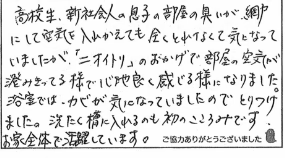 高校生、新社会人の息子の部屋の臭いが、網戸
にして空気を入れかえても全くとれなくて気になって
いましたが「ニオイトリ」のおかげで部屋の空気が
澄みきってる様で心地良く感じる様になりました。
浴室では、カビが気になっていましたのでとりつけ
ました。洗たく機に入れるのも初のこころみです。
お家全体で活躍しています。
ご協力ありがとうございました